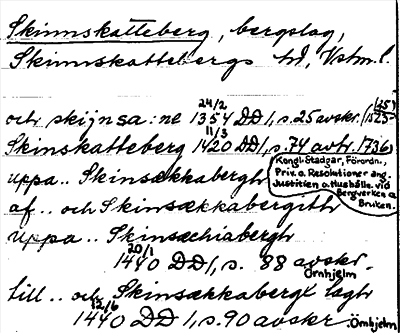 Skinnskatteberg, bergslag,
Skinnskattebergs hd, Vstm. l.
och skijnsa:ne 24/2 1354 DD 1, s. 25 avskr. (1523)
Skinskatteberg 11/3 1420 DD 1, s. 74 avtr. 1736
Kongl. Stadgar, Förordn.,
Priv. o. Resolutioner ang.
Justitien o. Hushålln. vid
Bergverken o.
Bruken.
uppa .. Skinsækkabergh
af .. och Skinsækkabergith
uppa .. Skinsæchiabergh
20/1 1440 DD 1, s. 88 avskr.
Örnhjelm
till .. och Skinsækkabergx lagh
12/6 1440 DD 1, s. 90 avskr Örnhjelm